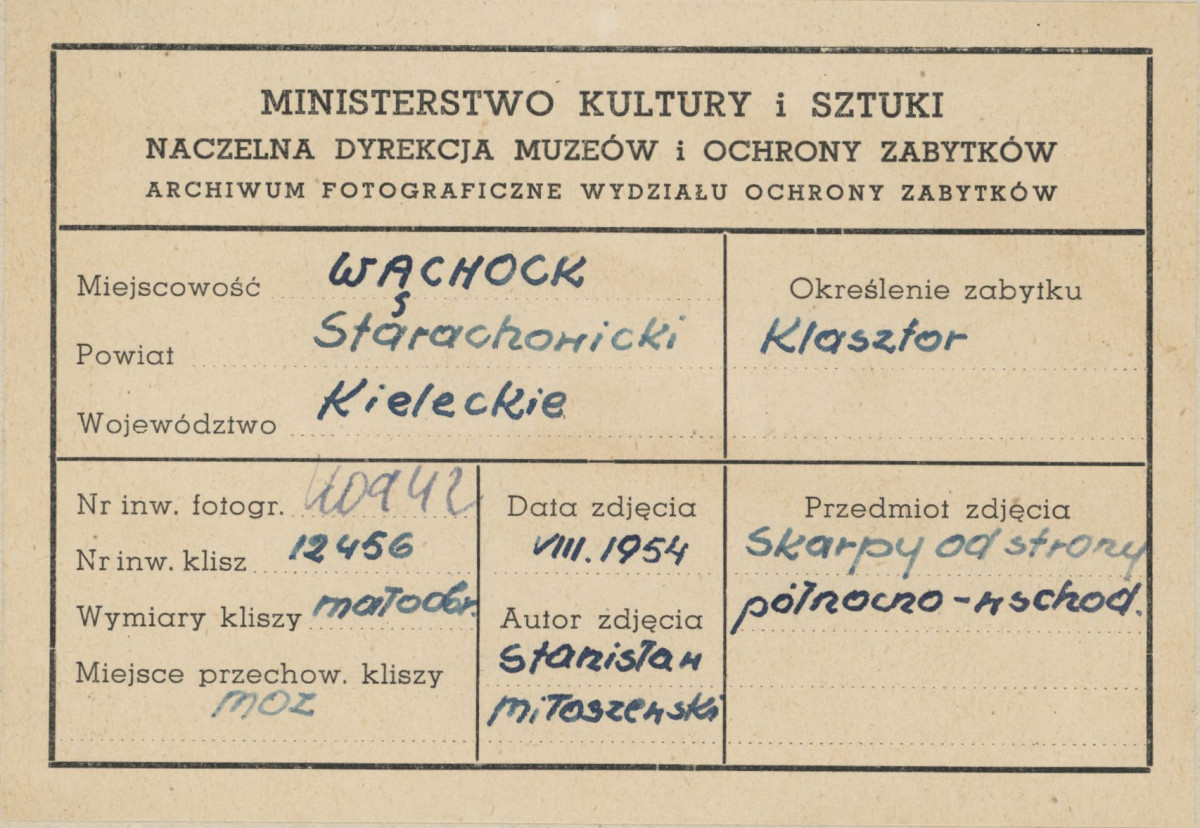 MINISTERSTWO KULTURY i SZTUKI
NACZELNA DYREKCJA MUZEÓW i OCHRONY ZABYTKÓW
ARCHIWUM FOTOGRAFICZNE WYDZIAŁU OCHRONY ZABYTKÓW
Miejscowość WĄCHOCK
Powiat Starachowicki
Województwo Kieleckie
Określenie zabytku
Klasztor
Nr inw. fotogr. 40942
Nr inw. klisz 12456
Wymiary kliszy małoobr.
Miejsce przechow. kliszy
MOZ
Data zdjęcia
VIII. 1954
Autor zdjęcia
Stanisław
Miłoszewski
Przedmiot zdjęcia
Skarpy od strony
północno-wschod.